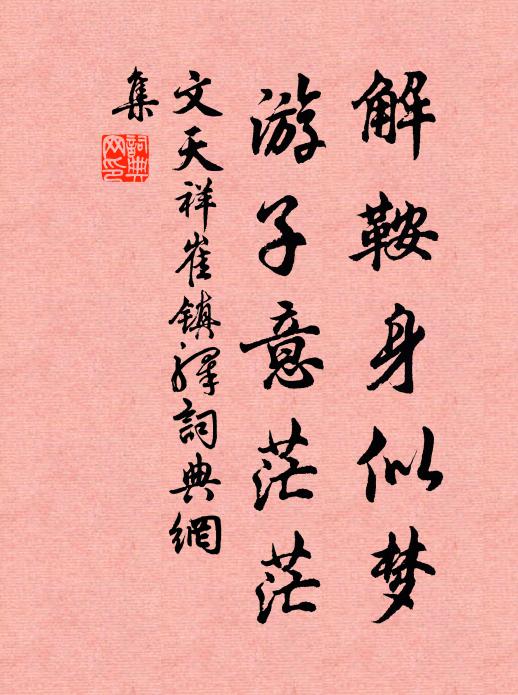 解鞍身似梦
游子意茫茫
文天祥崔镇驿詞典網
集
詞典网印